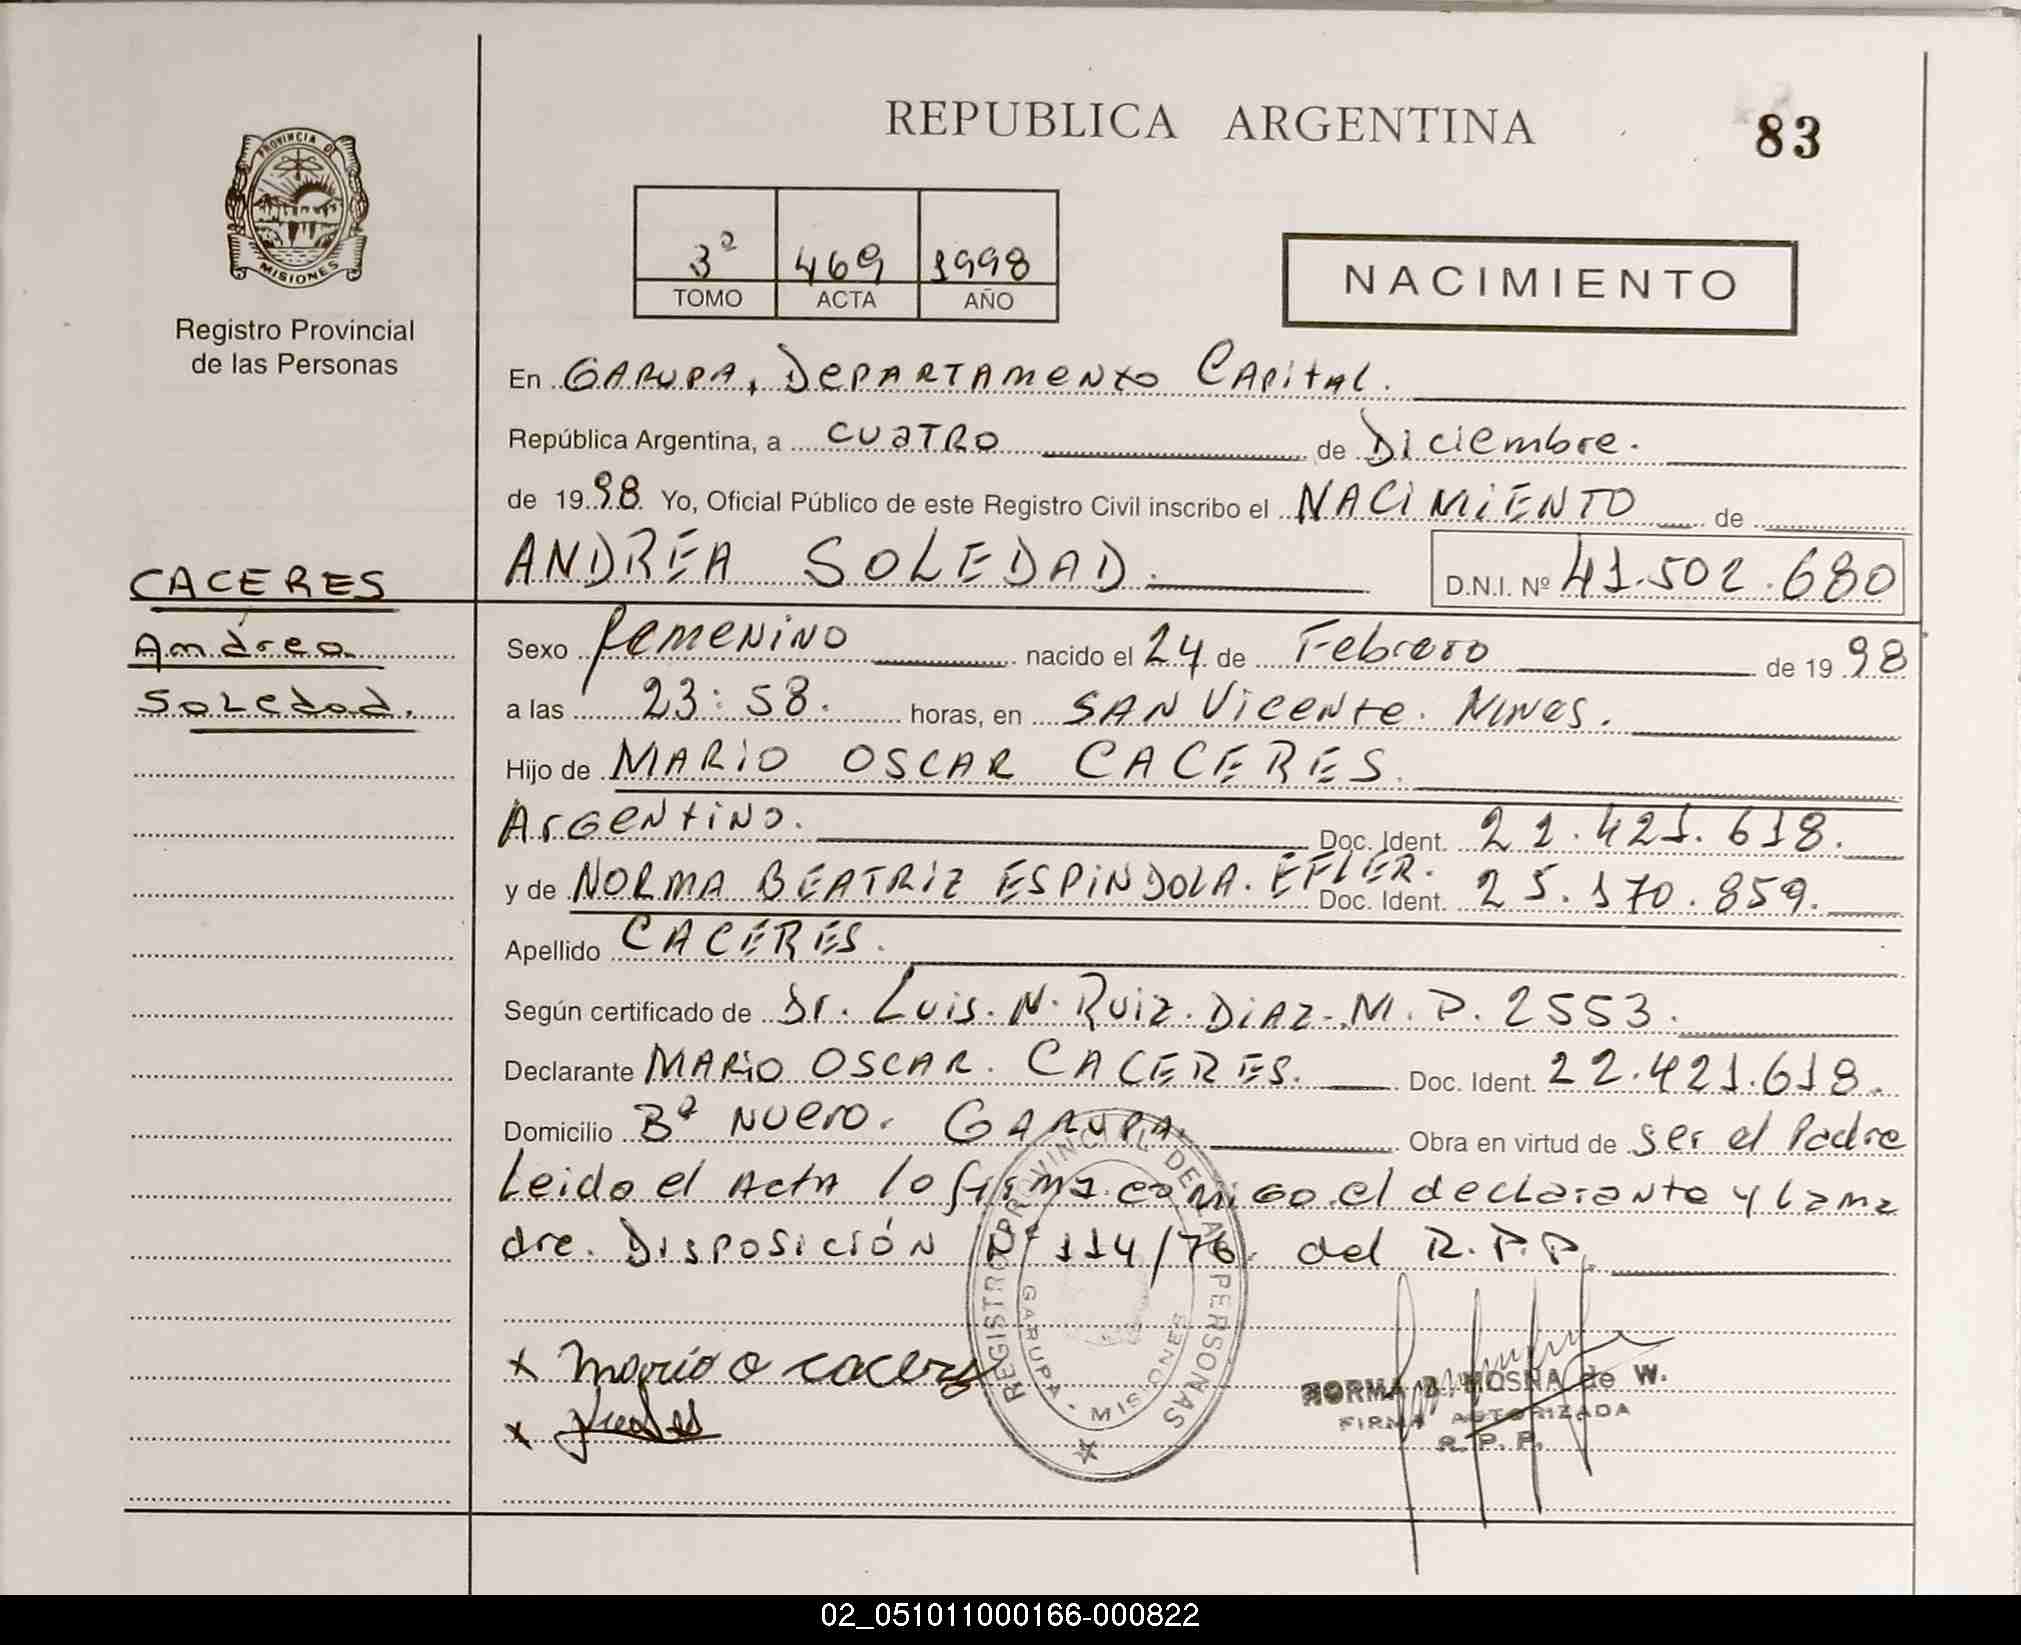 REPUBLICA ARGENTINA
83
PROVINCIA DE
MISIONES
Registro Provincial
de las Personas
3º 469 1998
TOMO ACTA AÑO
NACIMIENTO
En GARUPA, DEPARTAMENTO CAPITAL.
República Argentina, a CUATRO de Diciembre.
de 1998 Yo, Oficial Público de este Registro Civil inscribo el NACIMIENTO de
ANDREA SOLEDAD. D.N.I. Nº 41.502.680
CACERES
Andrea
Soledad.
Sexo femenino nacido el 24 de Febrero de 1998
a las 23:58. horas, en SAN Vicente.
Hijo de MARIO OSCAR CACERES.
Argentino. Doc. Ident. 22.421.618.
y de NORMA BEATRIZ ESPINDOLA. EFLER. Doc. Ident. 25.170.859.
Apellido CACERES.
Según certificado de Dr. Luis. N. Ruiz. Diaz. M.P. 2553.
Declarante MARIO OSCAR. CACERES. Doc. Ident. 22.421.618.
Domicilio Bº NUEVO. GARUPA. Obra en virtud de ser el Padre
Leido el Acta lo firma comigo el declarante y la ma
dre. Disposición Nº 114/76. del R.P.P.
x Mario o caceres
x
REGISTRO PROVINCIAL DE LAS PERSONAS
GARUPA - MISIONES
NORMA B. MOSNA de W.
FIRMA AUTORIZADA
R.P.P.
02_051011000166-000822